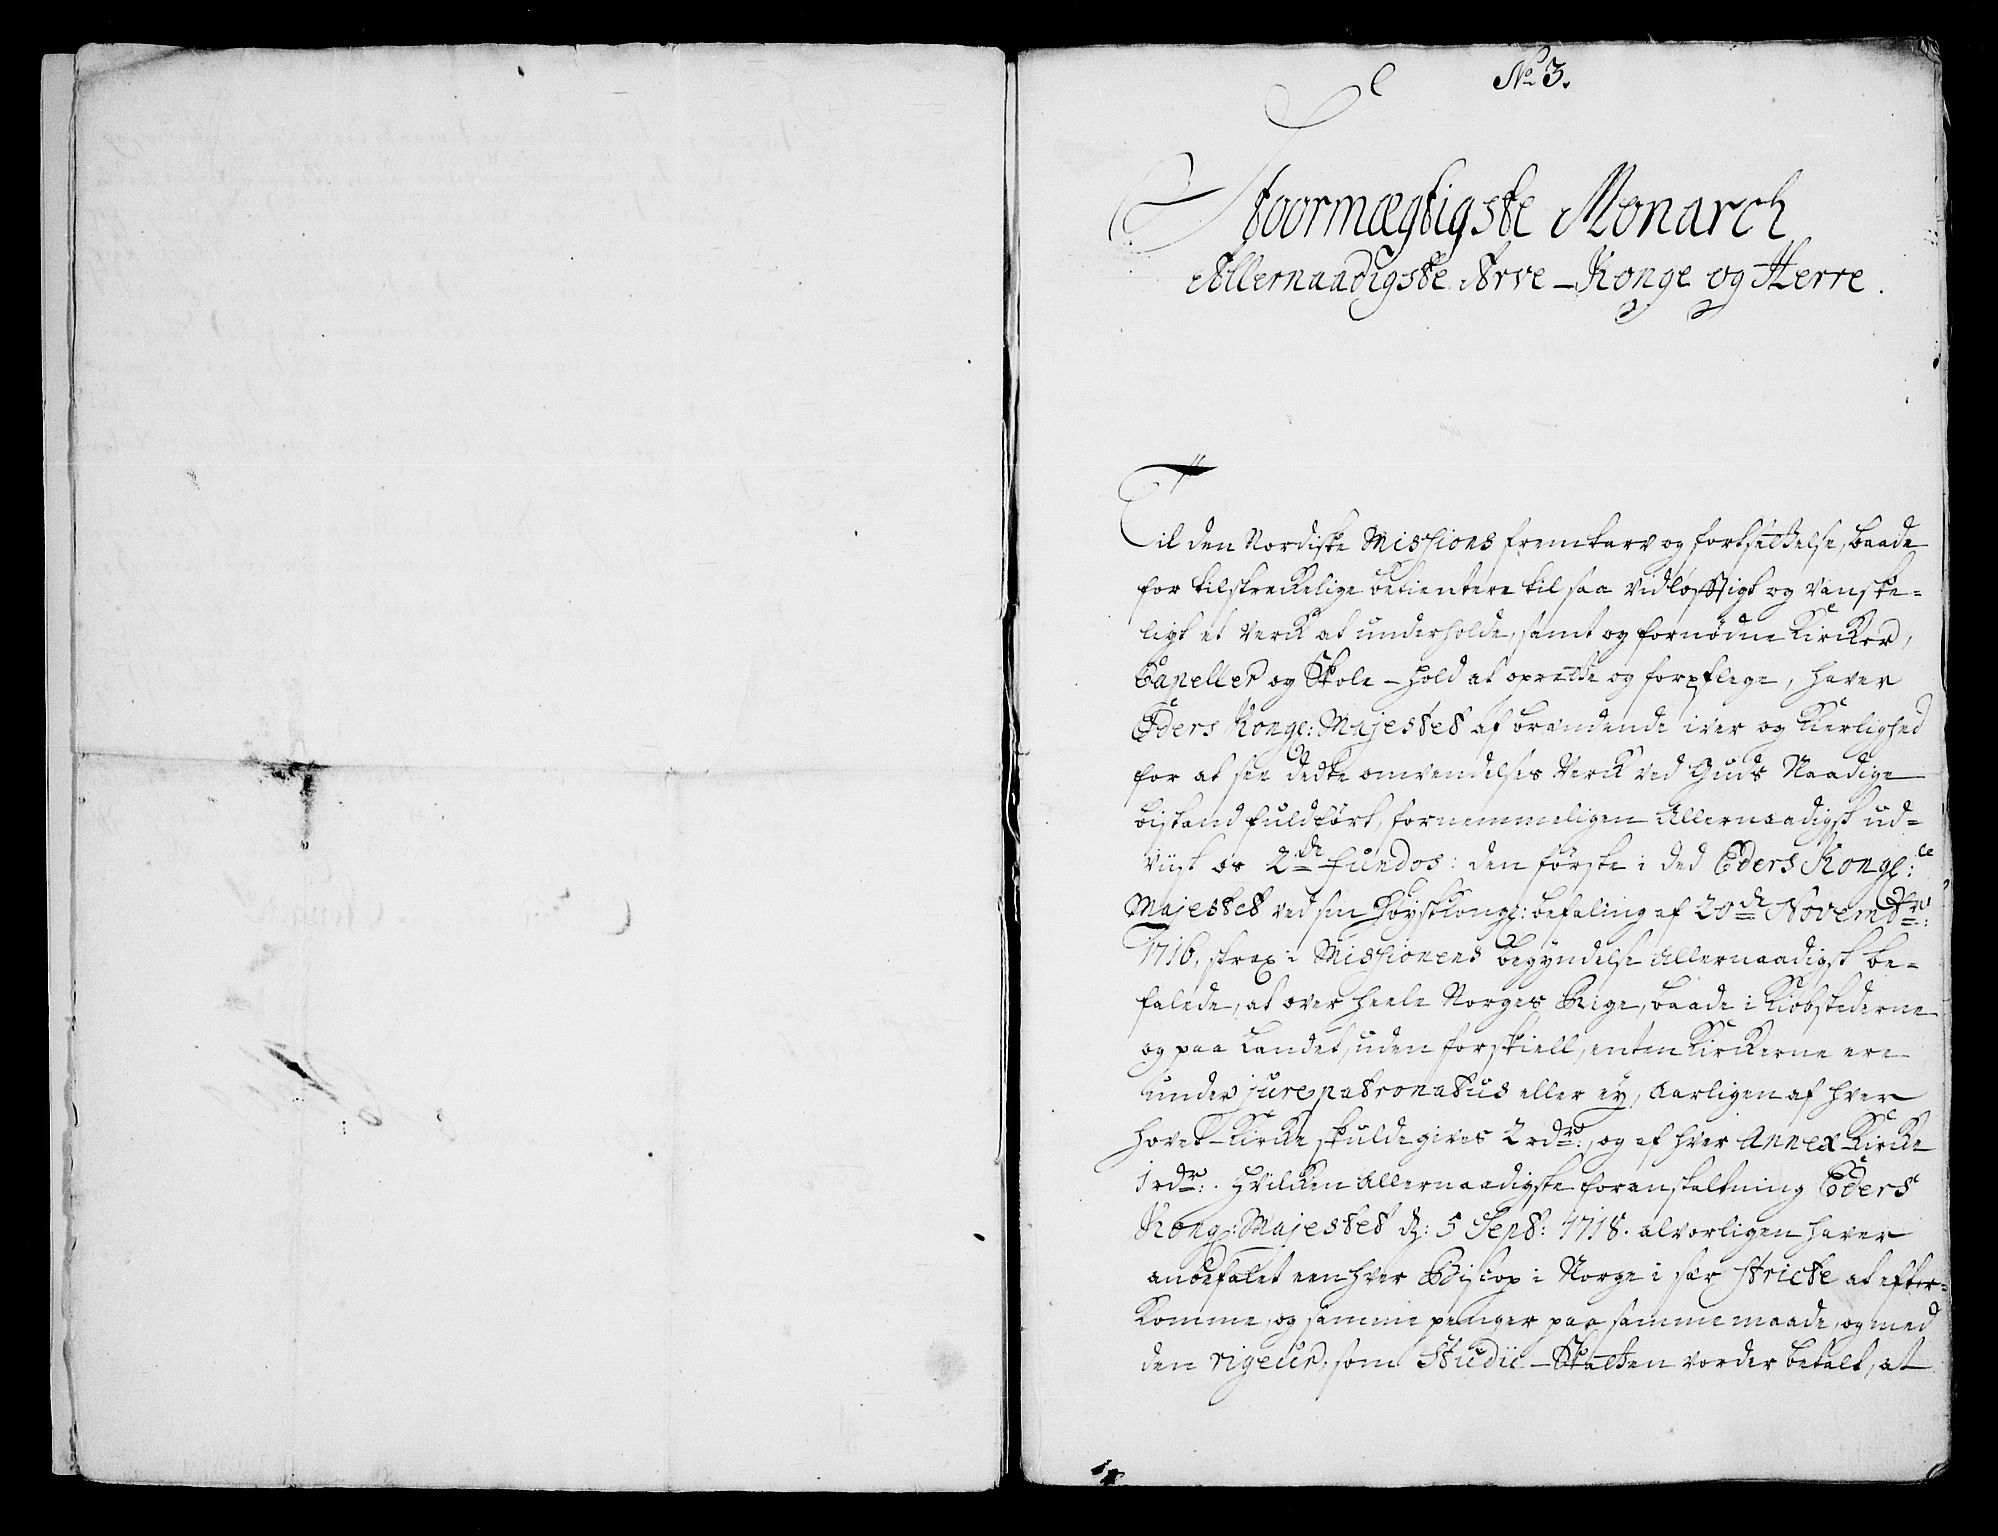 No 3.
Stoormægtigste Monarch
Allernaadigste Arve-Konge og Herre.
Til den Nordiske Missions fremtarv og fortsettelse, baade
for tilstreckelige betientere til saa vidløfftigt og vanske-
ligt et Verck at underholde, samt og fornødne Kircker,
Capeller og Skole-hold at oprette og forpflege, haver
Eders Kongl: Majestet af brændende iver og Kierlighed
for at see dette omvendelses Verck ved Guds Naadige
bistand fuldført, fornemmeligen Allernaadigst ud-
viist os 2de fundos: den første i ded Eders Kongl:
Majestet ved sin Høystkongl: befaling af 20de Novembr:
1716, strax i Missionens begyndelse Allernaadigst be-
falede, at over heele Norges Rige, baade i Kiøbstederne
og paa Landet, uden forskiell, enten Kirckerne ere
under jure patronatus eller ey, aarligen af hver
Hovet-Kircke skulde gives 2 rdr:, og af hver Annex Kircke
1 rdr:. Hvilcken Allernaadigste foranstaltning Eders
Kongl: Majestet d: 5 Sept: 1718. alvorligen haver
anbefalet een hver Biscop i Norge i sær stricte at efter-
komme, og samme penger paa samme maade, og med
den rigeur, som Studii-Skatten vorder betalt, at